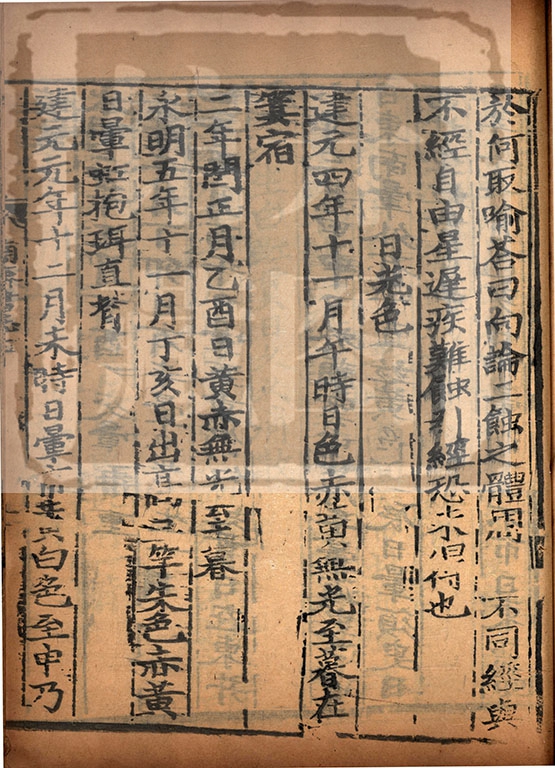 於何取喻荅曰向論二蝕之體周 不同經與
不經自由星遲疾難蝕引經恐未 也
日光色
建元四年十一月午時日色赤黃無光至暮在
箕宿
二年閏正月乙酉日黃赤無光至暮
永明五年十一月丁亥日出 竿朱色赤黃
日暈虹抱珥直背
建元元年十二月未時日暈 白色至申乃